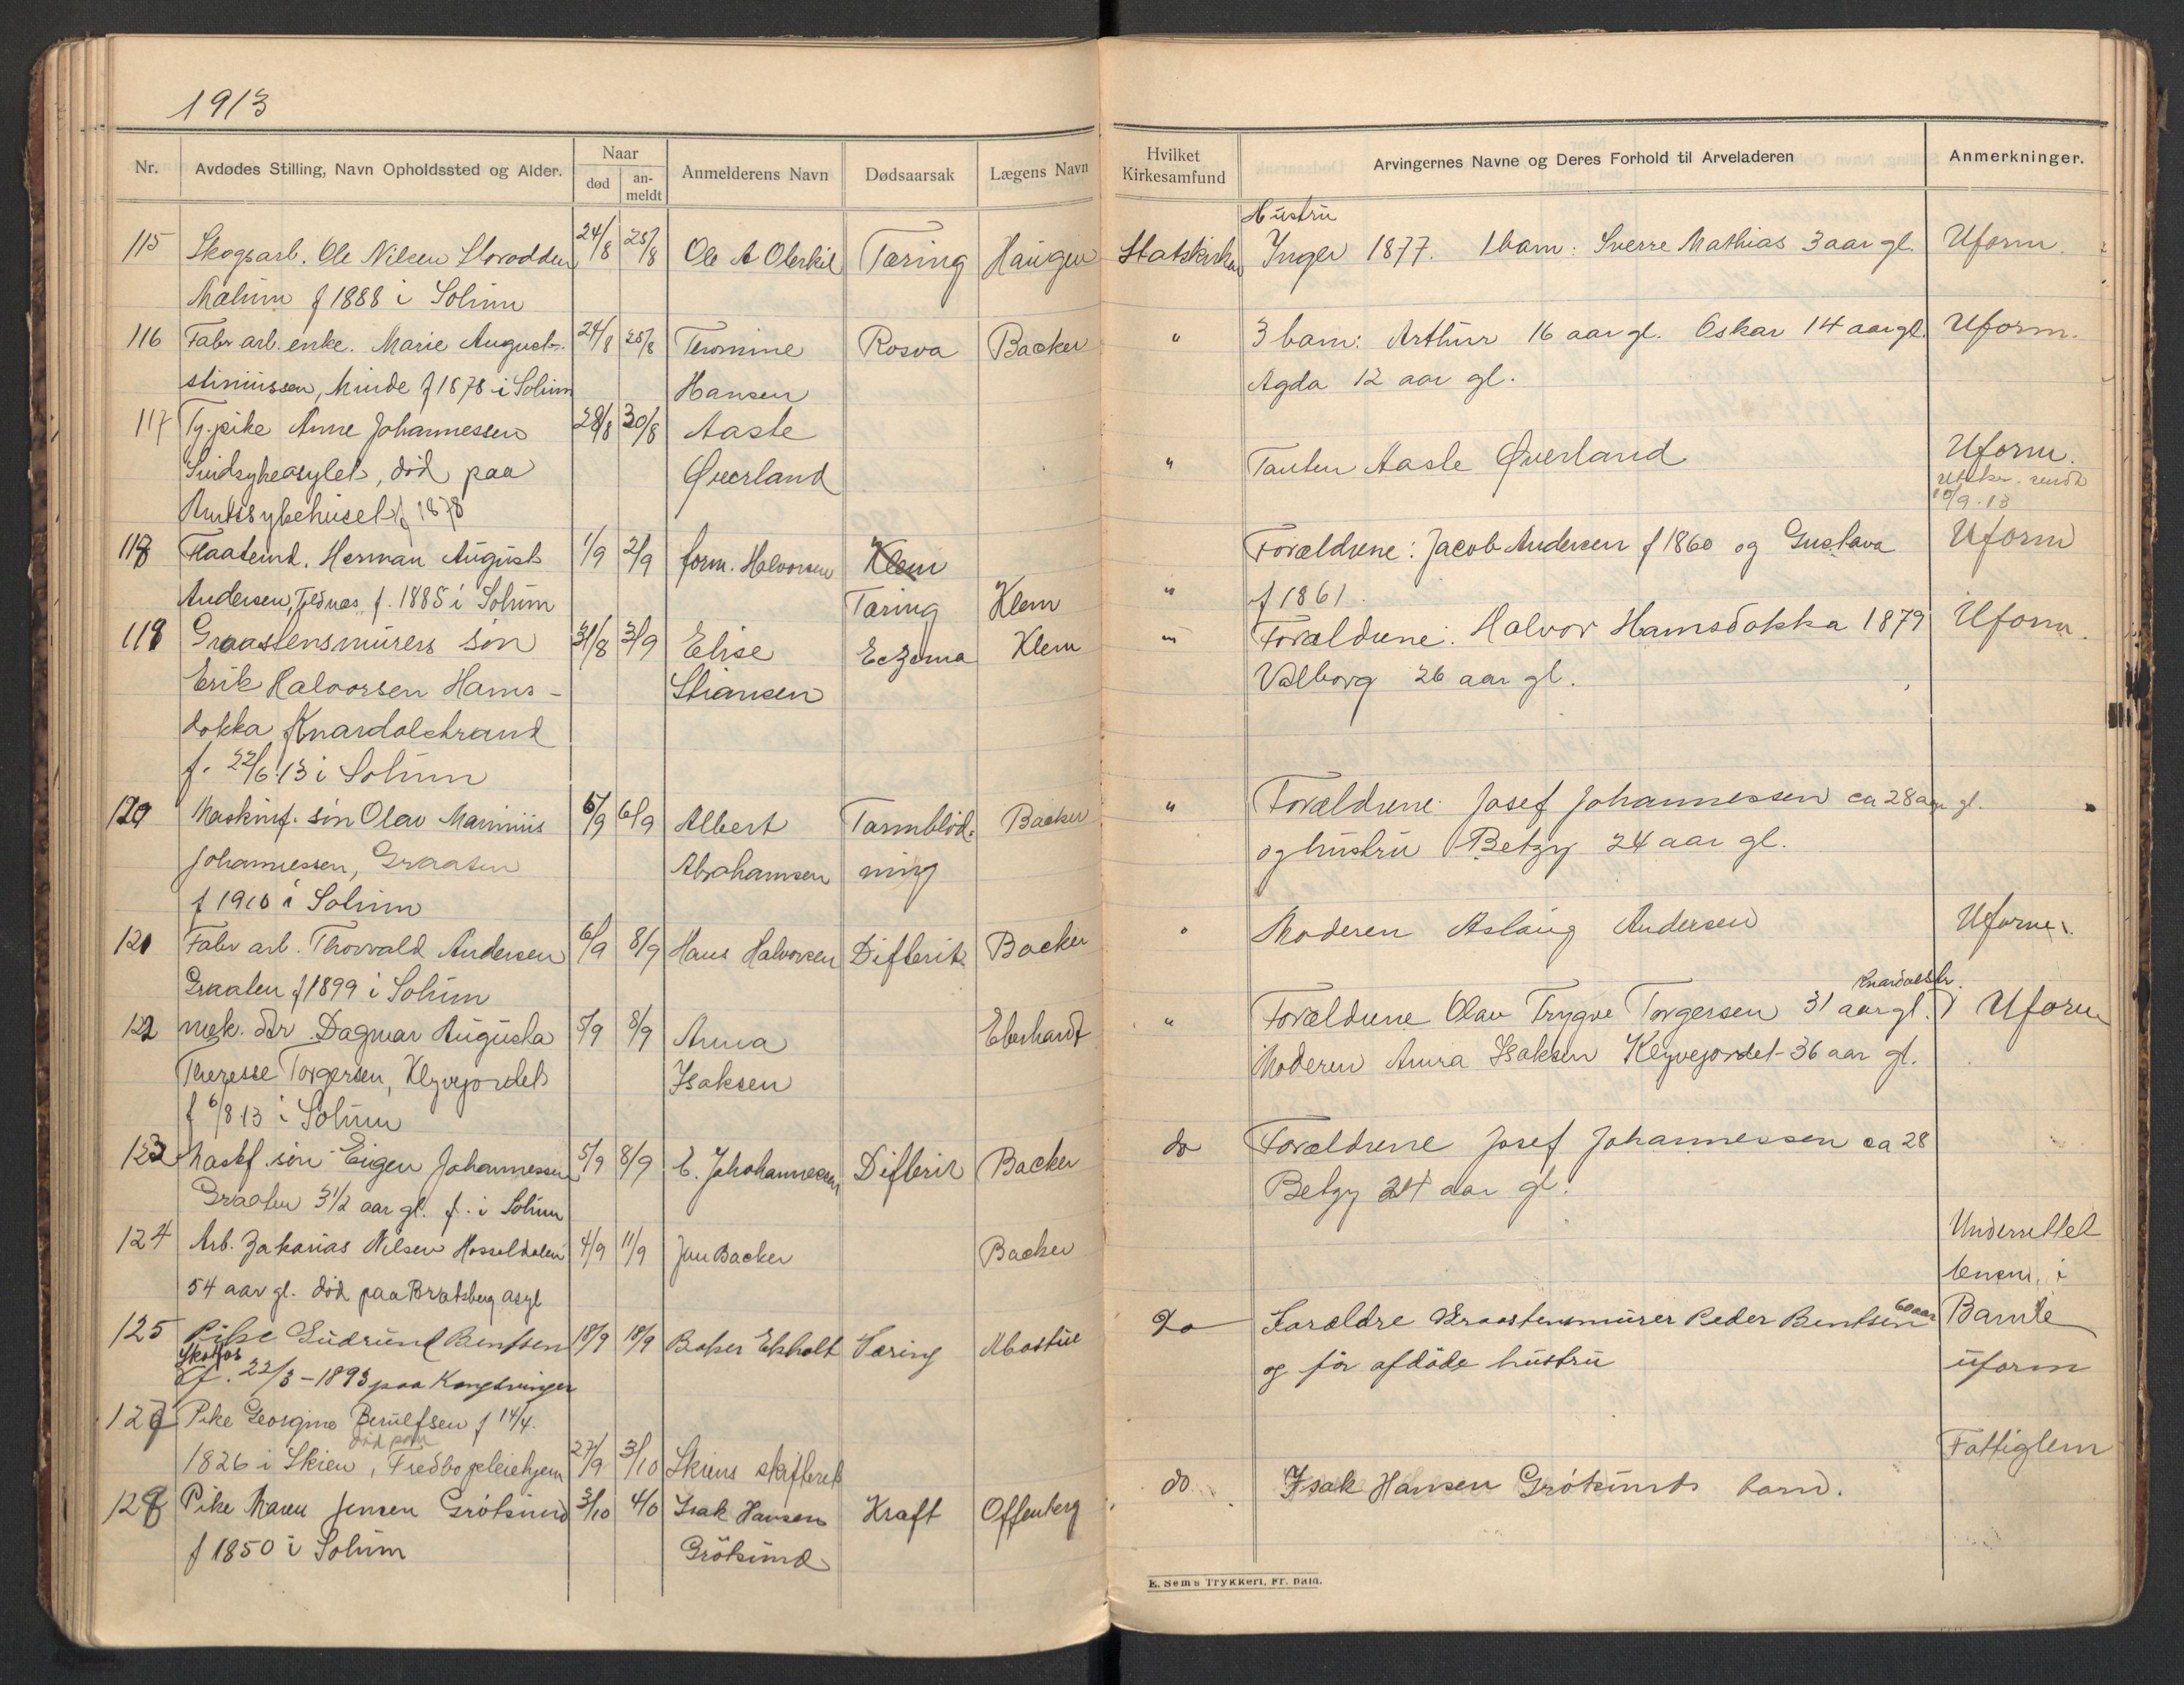 1913
Nr. Avdødes Stilling, Navn Opholdssted og Alder. Naar død an-meldt Anmelderens Navn Dødsaarsak Lægens Navn
Hvilket Kirkesamfund Arvingernes Navne og Deres Forhold til Arveladeren Anmerkninger.
Hustru
115 Skogsarb. Ole Nilsen 24/8 25/8 Ole A Oterkil Tæring Haugen Statskirken Inger 1877. 1 barn: Sverre Mathias 3 aar gl. Uform.
Mælum f 1888 i Solum
116 Fabr arb. enke. Marie August- 24/8 25/8 Tomine Rosva Backer " 3 barn: Arthur 16 aar gl. Oskar 14 aar gl. Uform.
stiniussen, Minde f 1878 i Solum Hansen Agda 12 aar gl.
117 Tj.pike Anne Johannessen 28/8 30/8 Aasle " Tanten Aasle Øverland Uform.
Sindsykeasylet, død paa Øverland
10/9-13
Amtssykehuset f 1878
118 Flaatemd. Herman August 1/9 2/9 form. Halvorsen Klem Forældrene: Jacob Andersen f 1860 og Gustava Uform
Andersen, Tufdnæs f. 1885 i Solum Tæring Klem " f 1861.
119 Graastensmurers søn 31/8 3/9 Elise Eczema Klem " Forældrene. Halvor Hamsdokka 1879 Uform.
Erik Halvorsen Hams- Stiansen Valborg 26 aar gl.
dokka Knardalstrand
f. 22/6.13 i Solum
120 Maskinf. søn Olav Marinius 5/9 6/9 Albert Tarmblød- Backer " Forældrene Josef Johannessen ca 28 aar gl.
Johannessen, Graaten Abrahamsen ning og hustru Betzy 24 aar gl.
f 1910 i Solum
121 Fabr arb. Thorvald Andersen 6/9 8/9 Hans Halvorsen Difterit Backer " Moderen Aslaug Andersen Uform.
Graaten f 1899 i Solum
Knardalstr.
122 mek. dtr. Dagmar Augusta 5/9 8/9 Anna Eberhardt " Forældrene Olav Trygve Torgersen 31 aar gl. Uform
Theresse Torgersen, Klyvejordet Isaksen Moderen Anna Isaksen Klyvejordet 36 aar gl.
f 6/8 13 i Solum
123 Maskf. søn Eigen Johannessen 5/9 8/9 E. Johohannessen Difterit Backer do Forældrene Josef Johannessen ca 28
Graaten 3 1/2 aar gl. f. i Solum Betzy 24 aar gl.
124 Arb. Zakarias Nilsen Hosseldalen 4/9 11/9 Jan Backer Backer Underrettel
54 aar gl. død paa Bratsberg asyl
lensm. i
125 Pike Gudrund Bentsen 18/9 18/9 Baker Ekholt Tæring Mostue Do Forældre Graastensmurer Peder Bentsen 60 aar Bamle
Skotfos
f. 22/3-1893 paa Kongsvinger og før afdøde hustru uform
127 Pike Georgine Berulfsen f 14/4.
død paa
1826 i Skien, Fredbo pleiehjem 27/9 3/10 Skiens skifteret Fattiglem
128 Pike Maren Jensen Grøtsund 3/10 4/10 Isak Hansen Kraft Offenberg do Isak Hansen Grøtsunds barn.
f 1850 i Solum Grøtsund
E. Sem's Trykkeri, Fr. hald.